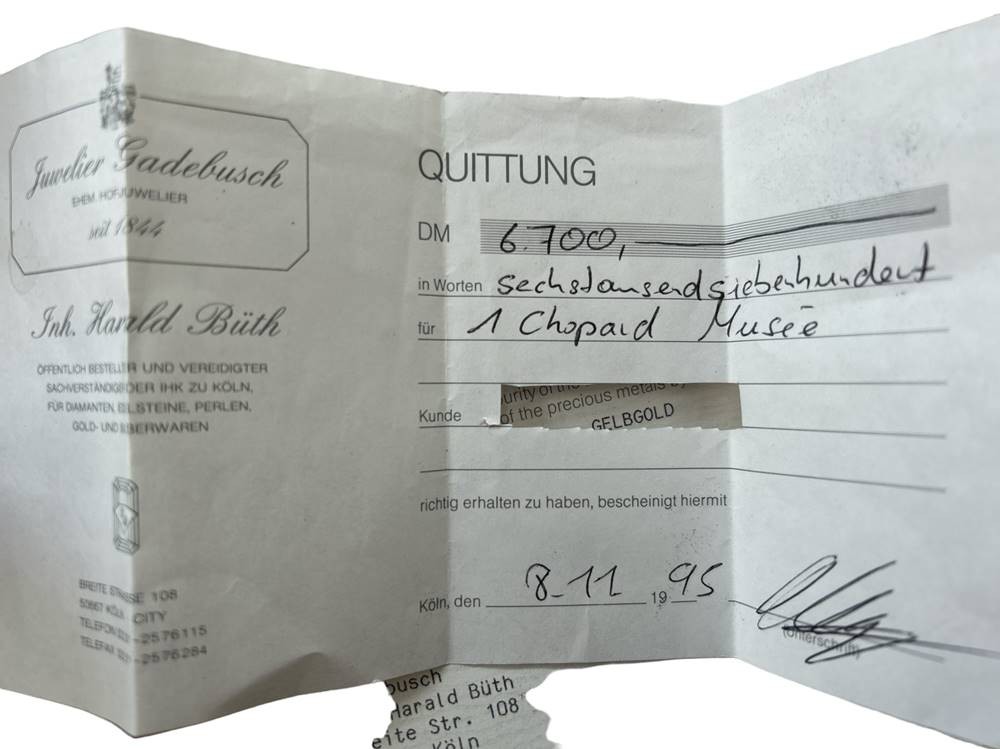 Juwelier Gadebusch
EHEM. HOFJUWELIER
seit 1844
Inh. Harald Büth
ÖFFENTLICH BESTELLTER UND VEREIDIGTER
SACHVERSTÄNDIGER DER IHK ZU KÖLN,
FÜR DIAMANTEN, EDELSTEINE, PERLEN,
GOLD- UND SILBERWAREN
BREITE STRASSE 108
50667 KÖLN CITY
TELEFON 0221-2576115
TELEFAX 0221-2576284
QUITTUNG
DM 6.700,—
in Worten sechstausendsiebenhundert
für 1 Chopard Musée
of the precious metals
Kunde GELBGOLD
richtig erhalten zu haben, bescheinigt hiermit
Köln, den 8.11 1995
(Unterschrift)
busch
Harald Büth
eite Str. 108
Köln